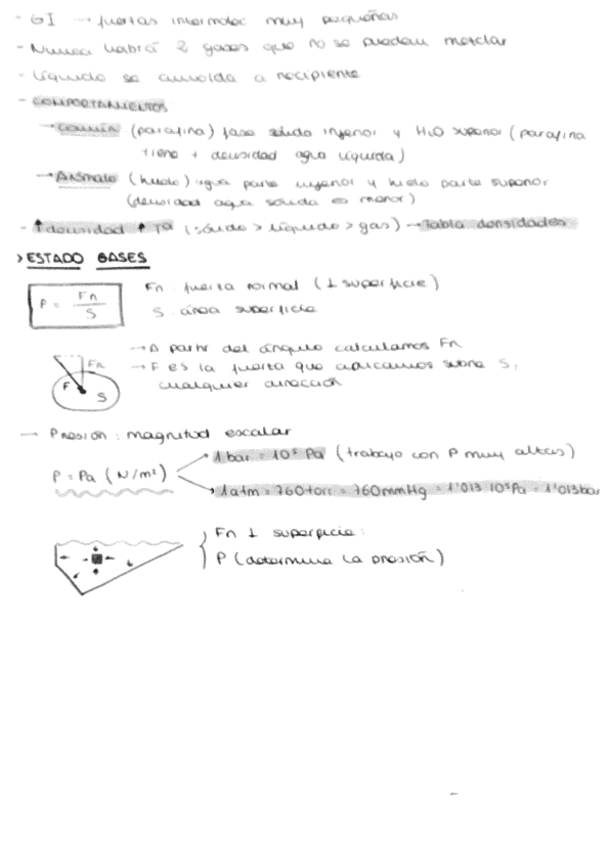 - GI → fuerzas intermolec muy pequeñas
- Nunca habrá 2 gases que no se puedan mezclar
- Líquido se amolda a recipiente
- COMPORTAMIENTOS
→ COMÚN (parafina) fase sólido inferior y H₂O superior (parafina
tiene + densidad agua líquida)
→ ANÓMALO (hielo) agua parte inferior y hielo parte superior
(densidad agua sólida es menor)
- ↑densidad ↑ Tª (sólido > líquido > gas) → Tabla densidades
> ESTADO GASES
P = Fn / S
Fn fuerza normal (⊥ superficie)
S. área superficie
Fn
F
S
→ A partir del ángulo calculamos Fn
→ F es la fuerza que aplicamos sobre S,
cualquier dirección
→ Presión: magnitud escalar
P = Pa (N/m²)
1 bar = 10⁵ Pa (trabajo con P muy altas)
1 atm = 760 torr = 760 mmHg = 1'013 10⁵ Pa = 1'013 bar
Fn ⊥ superficie:
P (determina la presión)